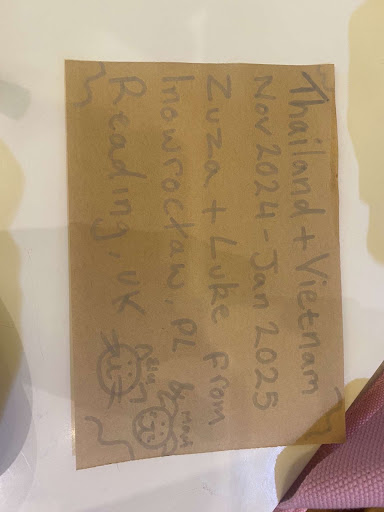 Thailand + Vietnam
Nov 2024 - Jan 2025
Zuza + Luke from
Inowrocław, PL &
Reading, UK